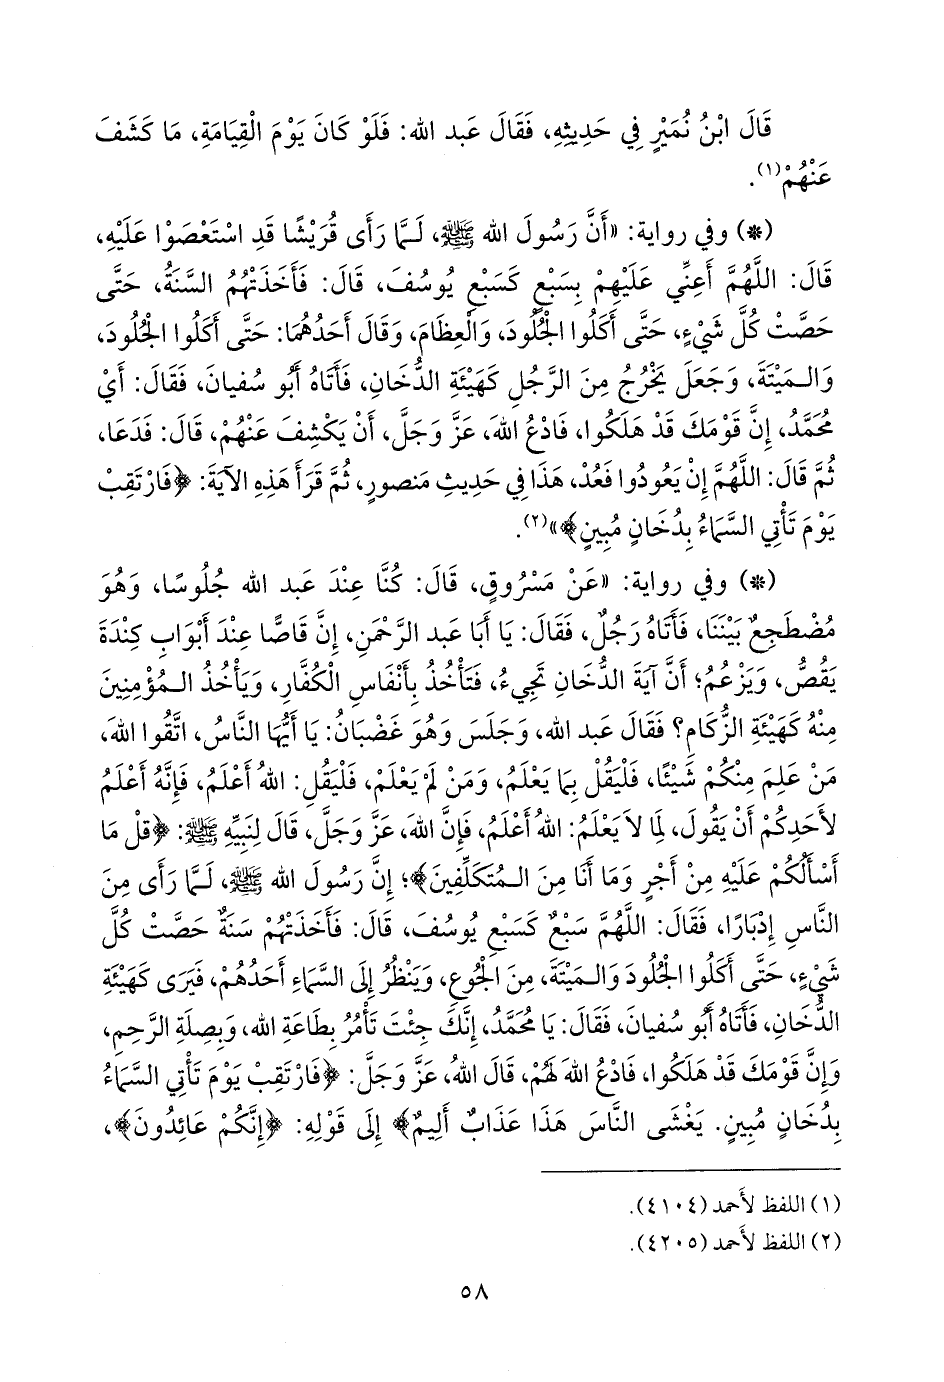 قَالَ ابْنُ نُمَيْرٍ فِي حَدِيثِهِ، فَقَالَ عَبد الله: فَلَوْ كَانَ يَوْمَ الْقِيَامَةِ، مَا كَشَفَ
عَنْهُمْ»(١).
(*) وفي رواية: «أَنَّ رَسُولَ الله ﷺ، لَمَّا رَأَى قُرَيْشًا قَدِ اسْتَعْصَوْا عَلَيْهِ،
قَالَ: اللَّهُمَّ أَعِنِّي عَلَيْهِمْ بِسَبْعٍ كَسَبْعِ يُوسُفَ، قَالَ: فَأَخَذَتْهُمُ السَّنَةُ، حَتَّى
حَصَّتْ كُلَّ شَيْءٍ، حَتَّى أَكَلُوا الْجُلُودَ، وَالْعِظَامَ، وَقَالَ أَحَدُهُمَا: حَتَّى أَكَلُوا الْجُلُودَ،
وَالـمَيْتَةَ، وَجَعَلَ يَخْرُجُ مِنَ الرَّجُلِ كَهَيْئَةِ الدُّخَانِ، فَأَتَاهُ أَبُو سُفيانَ، فَقَالَ: أَيْ
مُحَمَّدُ، إِنَّ قَوْمَكَ قَدْ هَلَكُوا، فَادْعُ اللهَ، عَزَّ وَجَلَّ، أَنْ يَكْشِفَ عَنْهُمْ، قَالَ: فَدَعَا،
ثُمَّ قَالَ: اللَّهُمَّ إِنْ يَعُودُوا فَعُدْ، هَذَا فِي حَدِيثِ مَنصورٍ، ثُمَّ قَرَأَ هَذِهِ الآيَةَ: ﴿فَارْتَقِبْ
يَوْمَ تَأْتِي السَّمَاءُ بِدُخَانٍ مُبِينٍ﴾»(٢).
(*) وفي رواية: «عَنْ مَسْرُوقٍ، قَالَ: كُنَّا عِنْدَ عَبد الله جُلُوسًا، وَهُوَ
مُضْطَجِعٌ بَيْنَنَا، فَأَتَاهُ رَجُلٌ، فَقَالَ: يَا أَبَا عَبد الرَّحْمَنِ، إِنَّ قَاصًّا عِنْدَ أَبْوَابِ كِنْدَةَ
يَقُصُّ، وَيَزْعُمُ؛ أَنَّ آيَةَ الدُّخَانِ تَجِيءُ، فَتَأْخُذُ بِأَنْفَاسِ الْكُفَّارِ، وَيَأْخُذُ الـمُؤْمِنِينَ
مِنْهُ كَهَيْئَةِ الزُّكَامِ؟ فَقَالَ عَبد الله، وَجَلَسَ وَهُوَ غَضْبَانُ: يَا أَيُّهَا النَّاسُ، اتَّقُوا اللهَ،
مَنْ عَلِمَ مِنْكُمْ شَيْئًا، فَلْيَقُلْ بِمَا يَعْلَمُ، وَمَنْ لَمْ يَعْلَمْ، فَلْيَقُلِ: اللهُ أَعْلَمُ، فَإِنَّهُ أَعْلَمُ
لأَحَدِكُمْ أَنْ يَقُولَ، لِمَا لاَ يَعْلَمُ: اللهُ أَعْلَمُ، فَإِنَّ اللهَ، عَزَّ وَجَلَّ، قَالَ لِنَبِيِّهِ ﷺ: ﴿قُلْ مَا
أَسْأَلُكُمْ عَلَيْهِ مِنْ أَجْرٍ وَمَا أَنَا مِنَ الـمُتَكَلِّفِينَ﴾؛ إِنَّ رَسُولَ الله ﷺ، لَمَّا رَأَى مِنَ
النَّاسِ إِدْبَارًا، فَقَالَ: اللَّهُمَّ سَبْعٌ كَسَبْعِ يُوسُفَ، قَالَ: فَأَخَذَتْهُمْ سَنَةٌ حَصَّتْ كُلَّ
شَيْءٍ، حَتَّى أَكَلُوا الْجُلُودَ وَالـمَيْتَةَ، مِنَ الْجُوعِ، وَيَنْظُرُ إِلَى السَّمَاءِ أَحَدُهُمْ، فَيَرَى كَهَيْئَةِ
الدُّخَانِ، فَأَتَاهُ أَبُو سُفيانَ، فَقَالَ: يَا مُحَمَّدُ، إِنَّكَ جِئْتَ تَأْمُرُ بِطَاعَةِ الله، وَبِصِلَةِ الرَّحِمِ،
وَإِنَّ قَوْمَكَ قَدْ هَلَكُوا، فَادْعُ اللهَ لَهُمْ، قَالَ اللهُ، عَزَّ وَجَلَّ: ﴿فَارْتَقِبْ يَوْمَ تَأْتِي السَّمَاءُ
بِدُخَانٍ مُبِينٍ. يَغْشَى النَّاسَ هَذَا عَذَابٌ أَلِيمٌ﴾ إِلَى قَوْلِهِ: ﴿إِنَّكُمْ عَائِدُونَ﴾،
(١) اللفظ لأَحمد (٤١٠٤).
(٢) اللفظ لأَحمد (٤٢٠٥).
٥٨